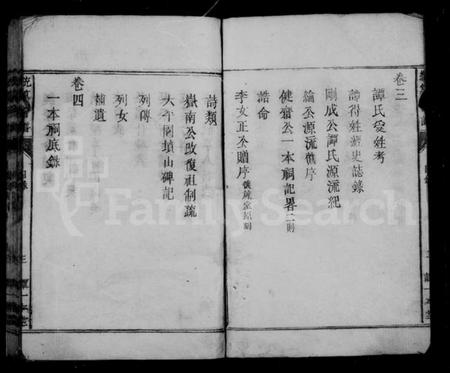 卷三
譚氏受姓考
譚得姓諸史誌錄
剛成公譚氏源流紀
綸公源流舊序
健齋公一本祠記畧二則
誥命
李文正公贈序
詩類
嶽南公改復祖制疏
大平閣墳山碑記
列傳
列女
補遺
卷四
一本祠底錄
FamilySearch